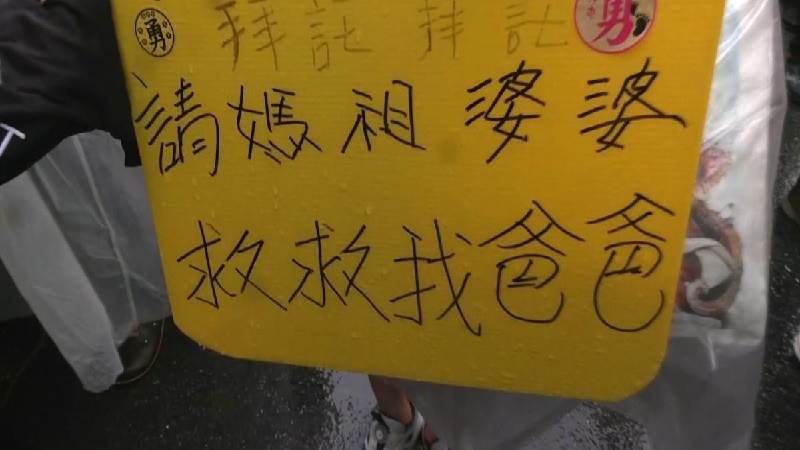 勇 拜託拜託 勇
請媽祖婆婆
救救我爸爸